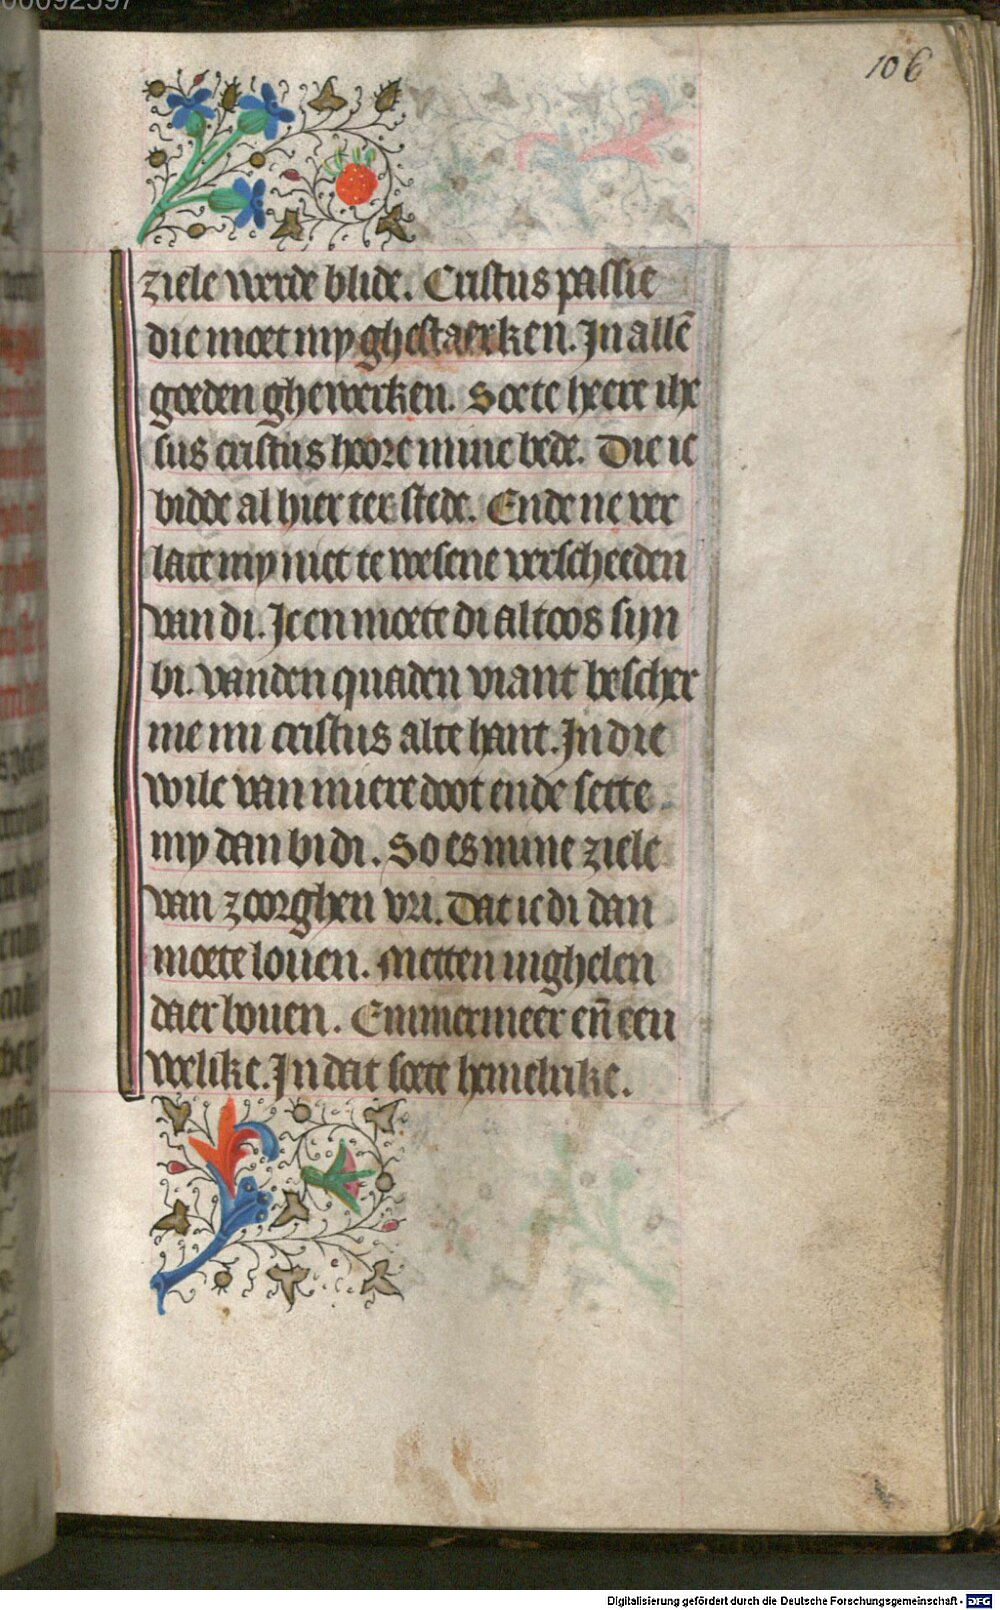 106
ziele werde blide. Cristus passie
die moet my ghestaerken. In allē
goeden ghewerken. Soete heere ihe
sus cristus hoore mine bede. Die ic
bidde al hier ter stede. Ende ne ver
late my niet te wesene verscheeden
van di. Ic en moete di altoos sijn
bi. Vanden quaden viant bescher
me mi cristus alte hant. In die
wile van miere doot ende sette
my dan bi di. So es mine ziele
van zoorghen vri. Dat ic di dan
moete louen. Metten inghelen
daer bouen. Emmermeer eñ eeu
welike. In dat soete hemelrike.
Digitalisierung gefördert durch die Deutsche Forschungsgemeinschaft - DFG